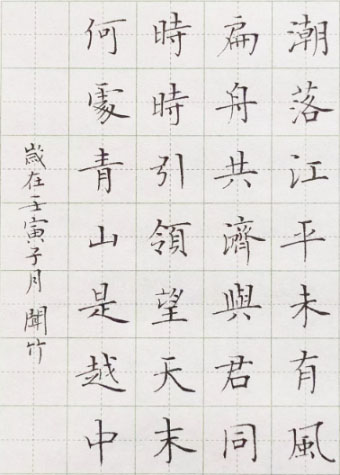 潮落江平未有風
扁舟共濟與君同
時時引領望天末
何處青山是越中
歲在壬寅子月聞竹